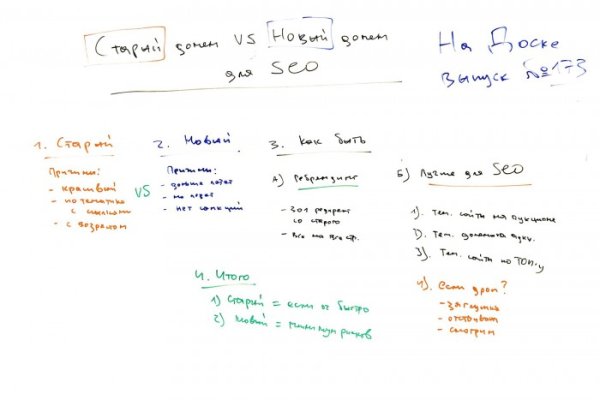 Старый домен VS Новый домен
для SEO
На Доске
выпуск №173
1. Старый
Причины:
- красивый
- по тематике
с ссылками
- с возрастом
VS
2. Новый
Причины:
- дольше
- не
- нет санкций
3. Как быть
А) Ребрендинг
- 301 редирект
со старого
- Все на все стр.
Б) Лучше для SEO
1). Тем. сайты на аукционе
2). Тем. домены на аукц.
3). Тем. сайты по ТОП-у
4). если дроп?
- загнутив
- отстаиваем
- смотрим
4. Итого
1) Старый = если оч быстро
2) Новый = минимум рисков